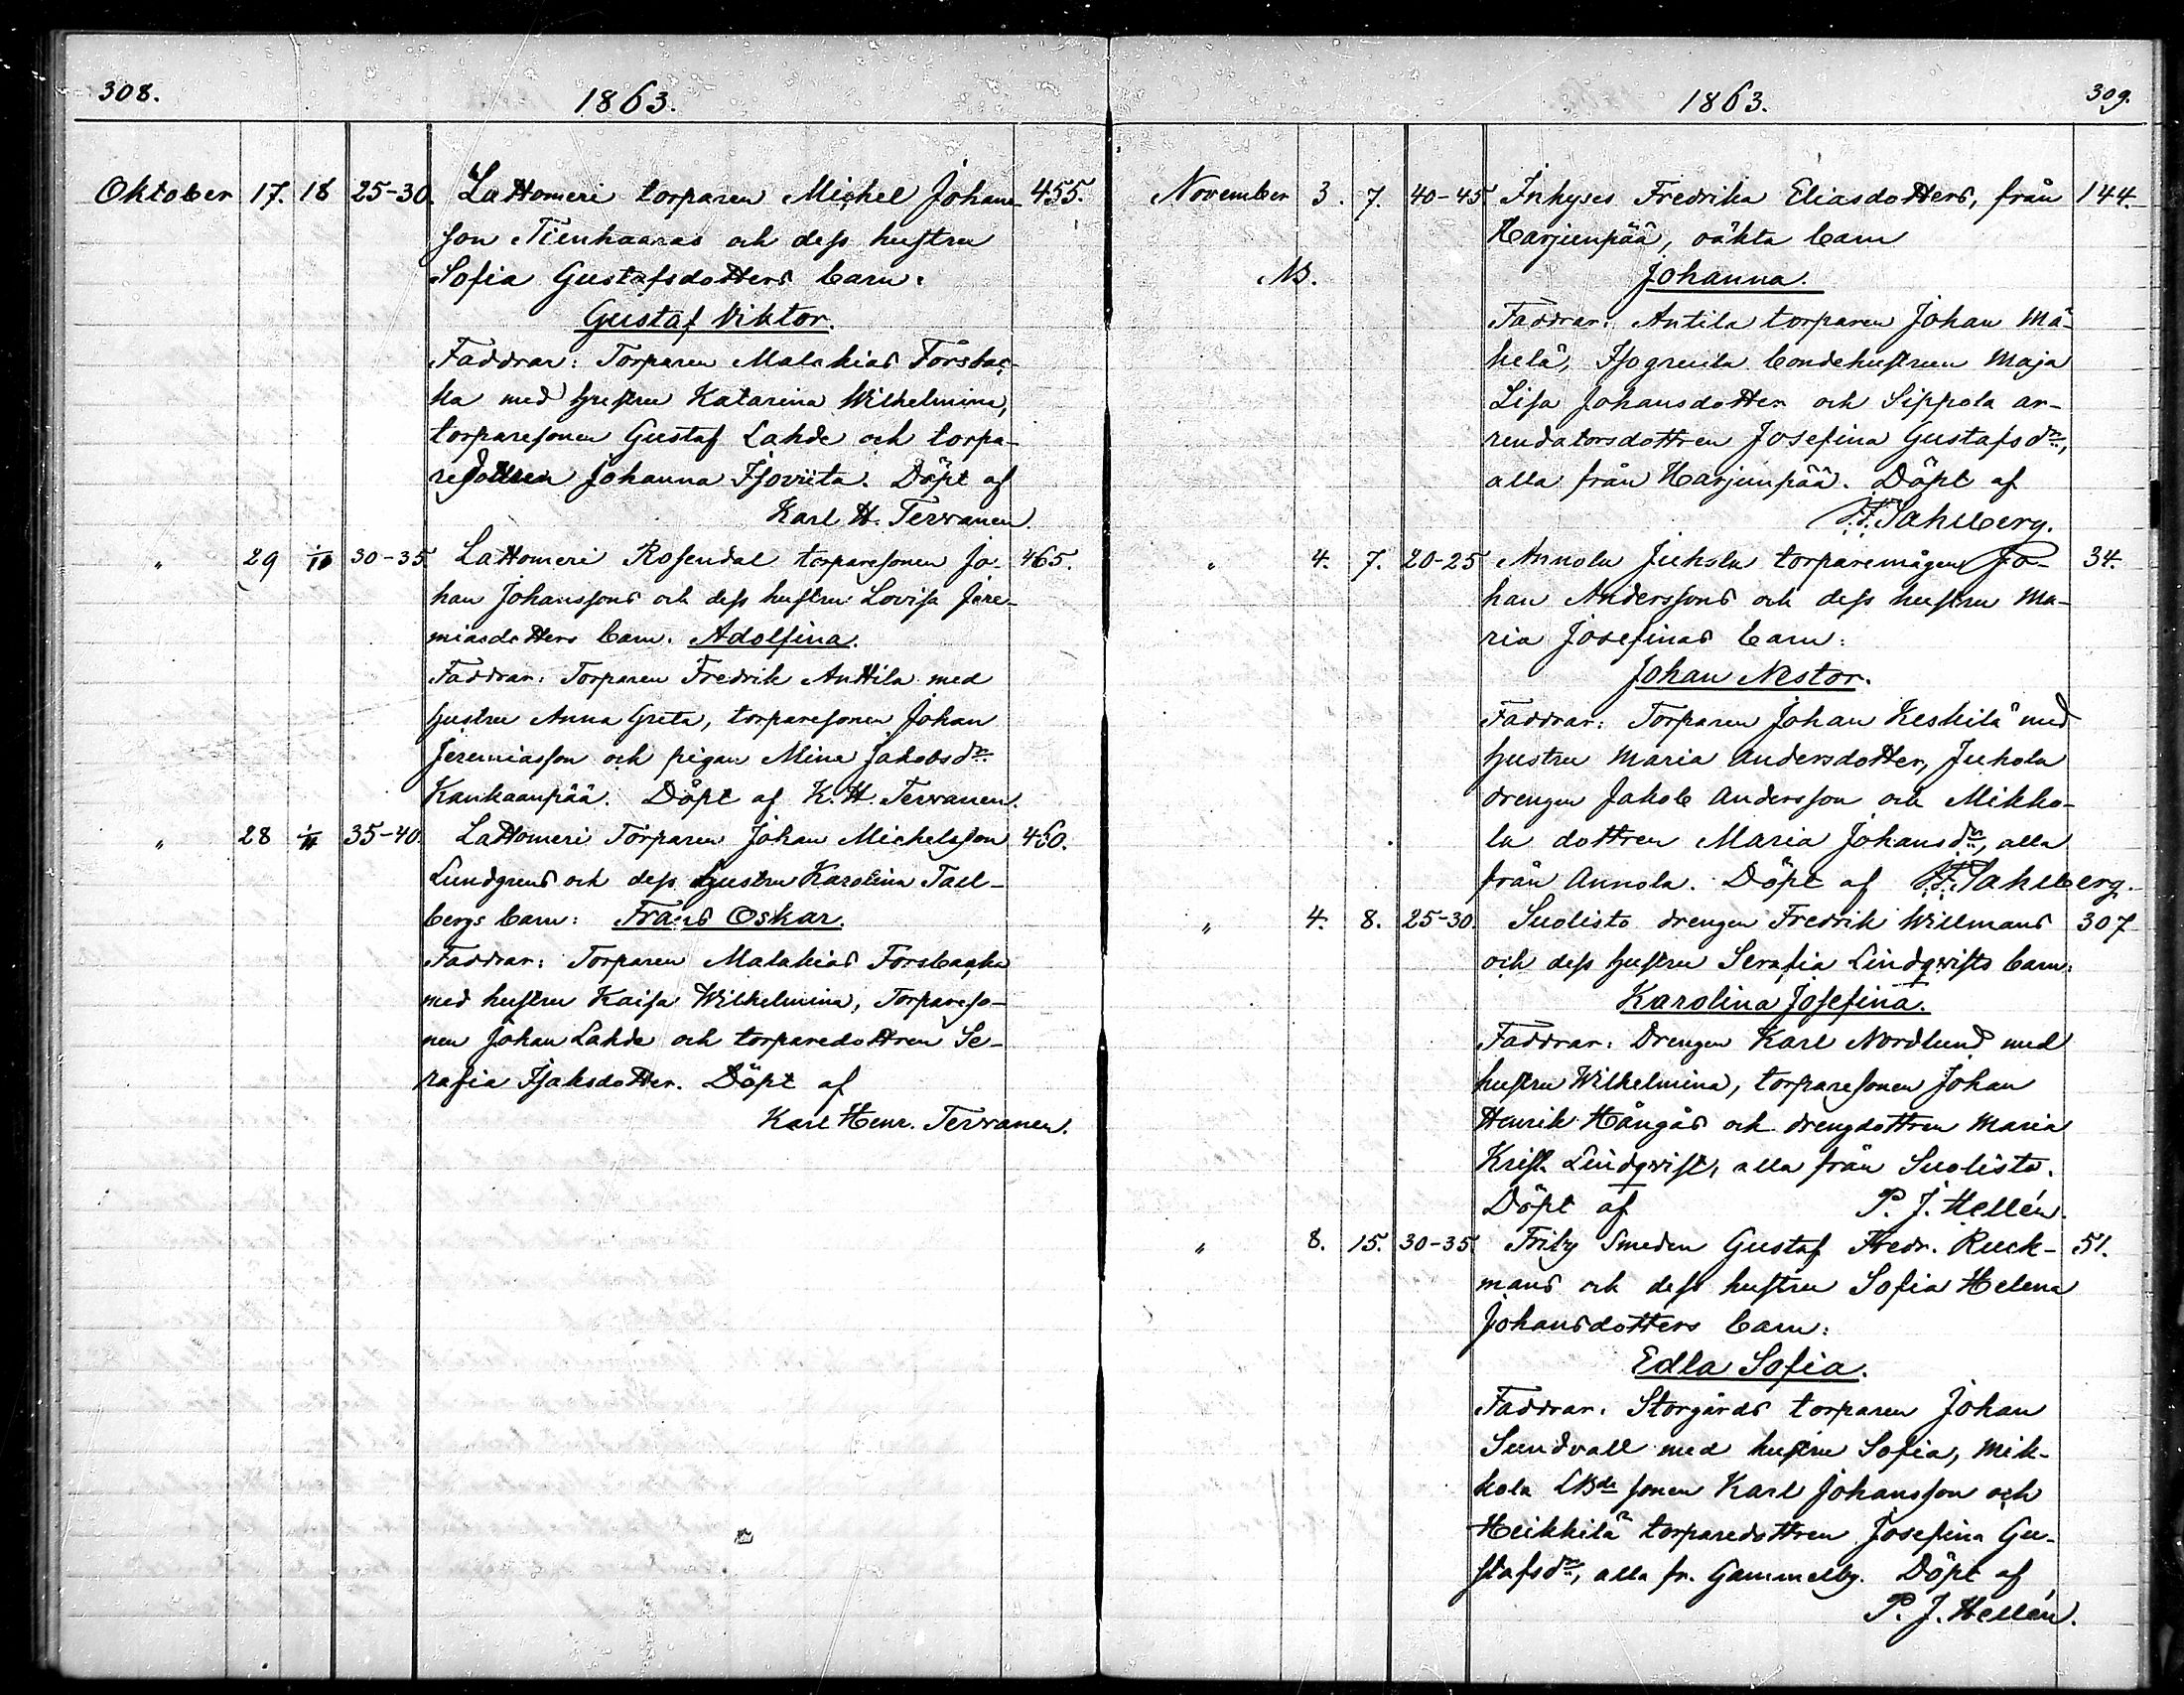 308.
1863.
Oktober 17. 18 25-30. Lattomeri torparen Michel Johans- 455.
son Tienhaaras och dess hustru
Sofia Gustafsdotters barn:
Gustaf Viktor.
Faddrar: Torparen Malakias Forsbac-
ka med hustru Katarina Wilhelmina,
torparesonen Gustaf Lahde och torpa-
redottren Johanna Isoviita. Döpt af
Karl H. Tervanen.
" 29 1/11 30-35 Lattomeri Rosendal torparesonen Jo- 465.
han Johanssons och dess hustru Lovisa Jere-
miasdotters barn. Adolfina.
Faddrar: Torparen Fredrik Anttila med
hustru Anna Greta, torparesonen Johan
Jeremiasson och pigan Mina Jakobsdr
Kankaanpää. Döpt af K. H. Tervanen.
" 28 1/11 35-40. Lattomeri Torparen Johan Michelsson 460.
Lundgrens och dess hustru Karolina Tall-
bergs barn: Frans Oskar.
Faddrar: Torparen Malakias Forsbacka
med hustru Kaisa Wilhelmina, Torpareso-
nen Johan Lahde och torparedottren Se-
rafia Isaksdotter. Döpt af
Karl Henr. Tervanen.
1863.
309.
November 3. 7. 40-45 Inhyses Fredrika Eliasdotters, från 144.
Harjunpää, oäkta barn
NB. Johanna.
Faddrar: Antila torparen Johan Mä-
kelä, Isogruila bondehustrun Maja
Lisa Johansdotter och Sippola ar-
rendatorsdottren Josefina Gustafsdr,
alla från Harjunpää. Döpt af
F. F. Sahlberg.
" 4. 7. 20-25 Annola Juhola torparemågen Jo- 34.
han Anderssons och dess hustru Ma-
ria Josefinas barn:
Johan Nestor.
Faddrar: Torparen Johan Keskilä med
hustru Maria Andersdotter, Juhola
drengen Jakob Andersson och Mikko-
la dottren Maria Johansdr, alla
från Annola. Döpt af F. F. Sahlberg.
" 4. 8. 25-30. Suolisto drengen Fredrik Willmans 307
och dess hustru Serafia Lindqvists barn:
Karolina Josefina.
Faddrar: Drengen Karl Nordlund med
hustru Wilhelmina, torparesonen Johan
Henrik Hångås och drengdottren Maria
Krist. Lindqvist, alla från Suolisto.
Döpt af P. J. Hellén.
" 8. 15. 30-35 Friby Smeden Gustaf Fredr. Ruck- 51.
mans och dess hustru Sofia Helena
Johansdotters barn:
Edla Sofia.
Faddrar: Storgårds torparen Johan
Sundvall med hustru Sofia, Mik-
kola LBde sonen Karl Johansson och
Heikkilä torparedottren Josefina Gu-
stafsdr, alla fr. Gammelby. Döpt af
P. J. Hellén.